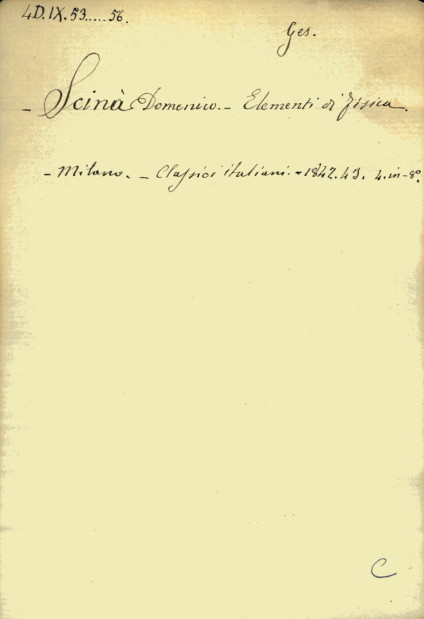 4D.IX.53.....56.
Ges.
- Scinà Domenico. - Elementi di fisica.
- Milano. - Classici italiani. - 1842.43. 4. in-8º.
C